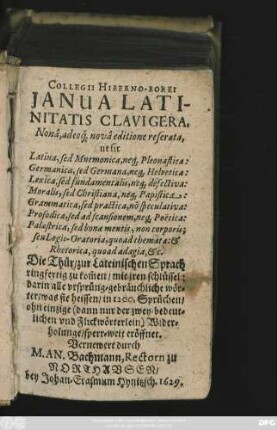 COLLEGII HIBERNO-BOREI
JANUA LATI-
NITATIS CLAVIGERA,
Nonâ, adeoq́, novâ editione reserata,
ut sit
Latina, sed Mnemonica, neq, Pleonastica:
Germanica, sed Germana, neq, Helvetica:
Lexica, sed fundamentalis, neq, defectiva:
Moralis, sed Christiana, neq, Papistica:
Grammatica, sed practica, nō speculativa:
Prosodica, sed ad scansionem, neq, Poëtica:
Palæstrica, sed bona mentis, non corporis;
seu Logic-Oratoria, quoad themata: &
Rhetorica, quoad adagia, &c.
Die Thür, zur Lateinischen Sprach
ringfertig zu komen/ mit jren schlüssel:
darin alle vrsprüng-gebräuchliche wör-
ter: was sie heissen/ in 1200. Sprüchen/
ohn einzige (dann nur der zwey-bedeut-
lichen vnd Flickwörterlein) Wider-
holunge/sperr-weit eröffnet.
Vernewert durch
M. AN. Bachmann, Rectorn zu
NORTHAUSEN/
bey Johan-Erasmum Hynitzsch. 1629.